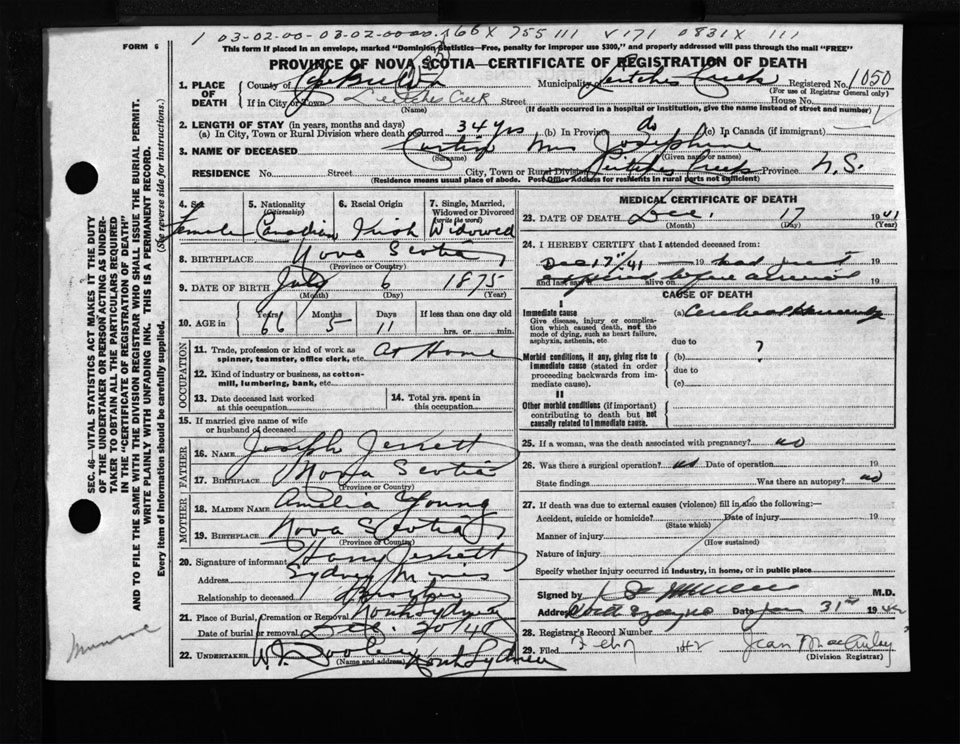 1 03-02-00-03-02-00 00 166X 755 111 V171 0831X 111
FORM 6
This form if placed in an envelope, marked "Dominion Statistics—Free, penalty for improper use $300," and properly addressed will pass through the mail "FREE"
PROVINCE OF NOVA SCOTIA—CERTIFICATE OF REGISTRATION OF DEATH
1. PLACE OF DEATH County of Municipality of Leitches Creek Registered No. 1050
(For use of Registrar General only)
If in City or Town Leitches Creek Street House No.
(Name) (If death occurred in a hospital or institution, give the name instead of street and number)
2. LENGTH OF STAY (in years, months and days)
(a) In City, Town or Rural Division where death occurred 34 yrs (b) In Province do (c) In Canada (if immigrant)
3. NAME OF DECEASED Mrs Josephine
(Surname) (Given name or names)
RESIDENCE No. Street City, Town or Rural Division Leitches Creek Province N.S.
(Residence means usual place of abode. Post Office Address for residents in rural parts not sufficient)
4. Sex 5. Nationality (Citizenship) 6. Racial Origin 7. Single, Married, Widowed or Divorced (write the word)
Female Canadian Irish Widowed
8. BIRTHPLACE Nova Scotia
(Province or Country)
9. DATE OF BIRTH July 6 1875
(Month) (Day) (Year)
10. AGE in Years Months Days If less than one day old
66 5 11 hrs. or min.
OCCUPATION
11. Trade, profession or kind of work as spinner, teamster, office clerk, etc. At Home
12. Kind of industry or business, as cotton-mill, lumbering, bank, etc.
13. Date deceased last worked at this occupation 14. Total yrs. spent in this occupation
15. If married give name of wife or husband of deceased
FATHER
16. NAME Joseph Jerrett
17. BIRTHPLACE Nova Scotia
(Province or Country)
MOTHER
18. MAIDEN NAME Amelia Young
19. BIRTHPLACE Nova Scotia
(Province or Country)
20. Signature of informant Harry Jerrett
Address Sydney Mines
Relationship to deceased Brother
21. Place of Burial, Cremation or Removal North Sydney
Date of burial or removal Dec. 20/41
22. UNDERTAKER W. J. Dooley North Sydney
(Name and address)
MEDICAL CERTIFICATE OF DEATH
23. DATE OF DEATH Dec. 17 1941
(Month) (Day) (Year)
24. I HEREBY CERTIFY that I attended deceased from:
Dec 17th 41 19 had just
and last saw h alive on expired before arrival 19
CAUSE OF DEATH
I
Immediate cause (a) Cerebral Hemorrhage
Give disease, injury or complication which caused death, not the mode of dying, such as heart failure, asphyxia, asthenia, etc.
due to
Morbid conditions, if any, giving rise to immediate cause (stated in order proceeding backwards from immediate cause).
(b) ?
due to
(c)
II
Other morbid conditions (if important) contributing to death but not causally related to immediate cause.
25. If a woman, was the death associated with pregnancy? no
26. Was there a surgical operation? no Date of operation 19
State findings Was there an autopsy? no
27. If death was due to external causes (violence) fill in also the following:
Accident, suicide or homicide? Date of injury 19
(State which)
Manner of injury
(How sustained)
Nature of injury
Specify whether injury occurred in industry, in home, or in public place
Signed by M.D.
Address North Sydney Date Jan 31st 1942
28. Registrar's Record Number
29. Filed Feb 7 1942
(Division Registrar)
SEC. 46—VITAL STATISTICS ACT MAKES IT THE DUTY
OF THE UNDERTAKER OR PERSON ACTING AS UNDER-
TAKER TO OBTAIN ALL THE PARTICULARS REQUIRED
IN THE "CERTIFICATE OF REGISTRATION OF DEATH"
AND TO FILE THE SAME WITH THE DIVISION REGISTRAR WHO SHALL ISSUE THE BURIAL PERMIT.
WRITE PLAINLY WITH UNFADING INK. THIS IS A PERMANENT RECORD.
Every item of Information should be carefully supplied. (See reverse side for instructions.)
Munroe